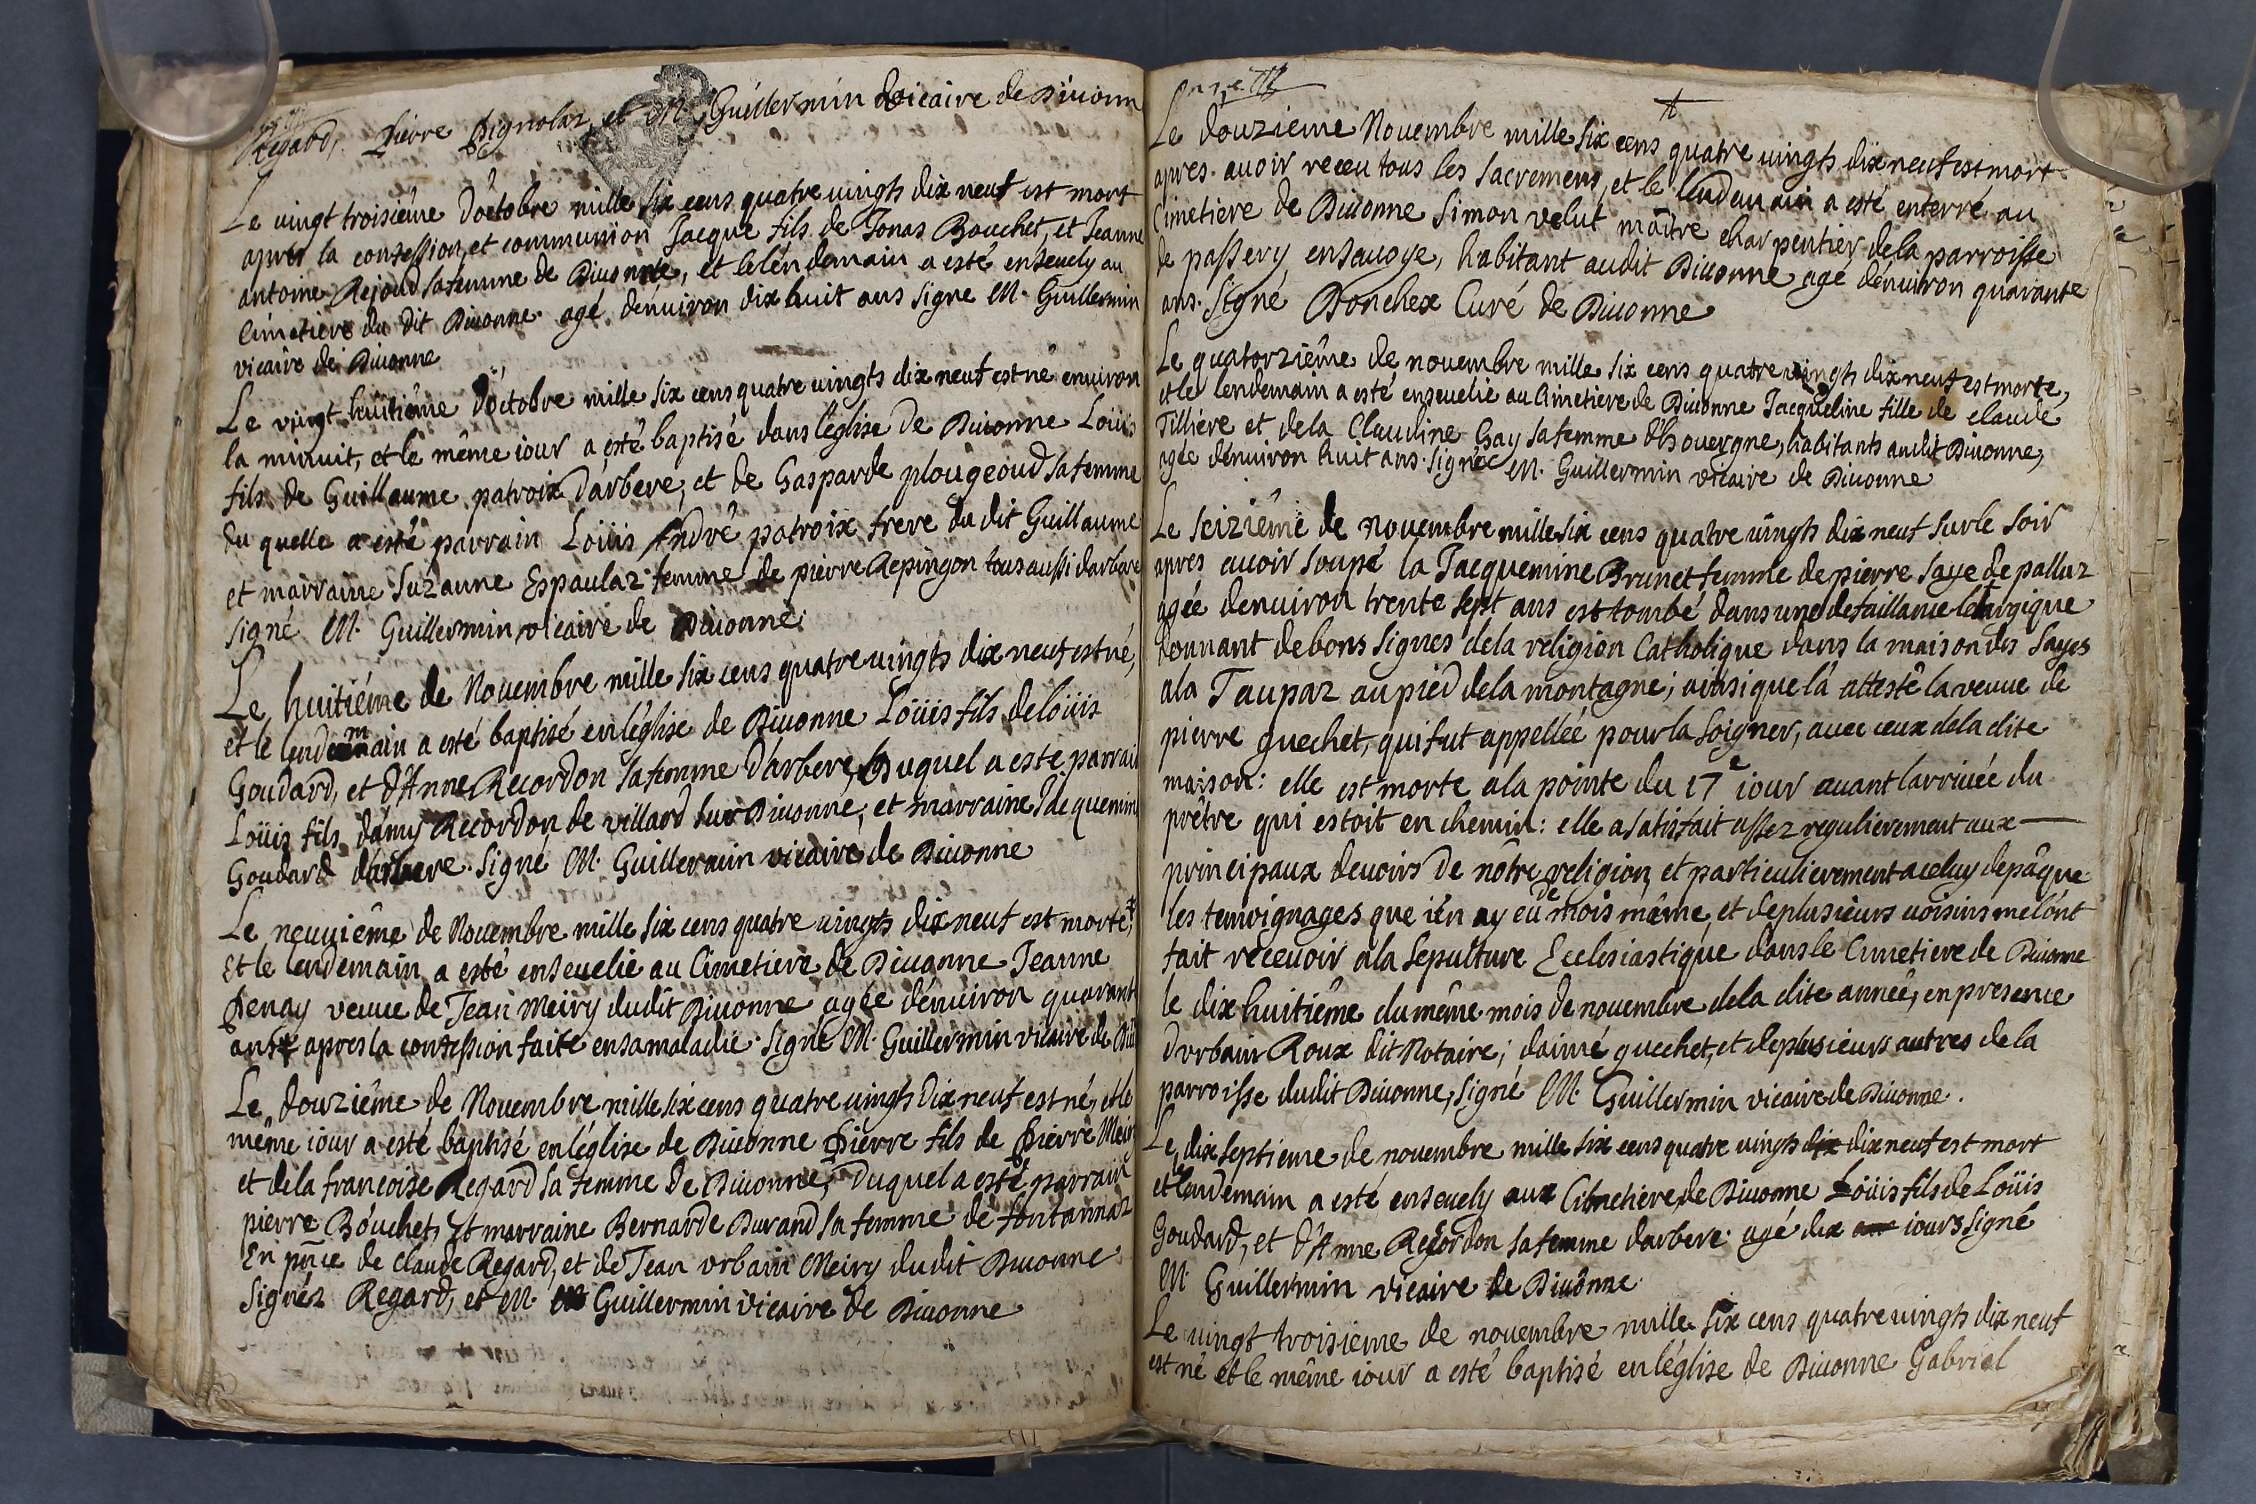 Regard, Pierre Pignolaz, et M. Guillermin vicaire de Diuonn
Le uingt troisiême d'octobre mille six cens quatre uingts dix neuf est mort
apres la confession, et communion Jacque fils de Jonas Bouchet, et Jeanne
antoine Rejoud sa femme de Diuonne, et le lendemain a esté enseuely au
Cimetiere du dit Diuonne. agé denuiron dix huit ans signe M. Guillermin
vicaire de Diuonne
Le vingt huitiême d'octobre mille six cens quatre uingts dix neuf est né enuiron
la minuit, et le même iour a esté baptisé dans l'église de Diuonne Loüis
fils de Guillaume patroix d'arbere, et de Gasparde plougeoud sa femme
du quelle a esté parrain Loüis André patroix frere du dit Guillaume
et marraine Suzanne Espaulaz femme de pierre Repingon tous aussi darbere
signé M. Guillermin vicaire de Diuonne.
Le huitiéme de Nouembre mille six cens quatre uingts dix neuf est né,
et le lendemain a esté baptisé en l'église de Diuonne Loüis fils de loüis
Goudard, et d'Anne Recordon sa femme d'arbere, duquel a este parrain
Loüis fils d'amy Recordon de villard sur Diuonne, et marraine Jacquemin
Goudard d'arbere. signé M. Guillermin vicaire de Diuonne
Le neuuiême de Nouembre mille six cens quatre uingts dix neuf est morte,
Et le lendemain a esté enseuelie au Cimetiere de Diuonne Jeanne
Penay veuue de Jean Meiry dudit Diuonne agée d'enuiron quarant
ans apres la confession faite en sa maladie. signé M. Guillermin vicaire de Diu
Le douziême de Nouembre mille six cens quatre uingts dix neuf est né, et le
même iour a esté baptisé en l'église de Diuonne Pierre fils de Pierre Meiry
et de la francoise Regard sa femme de Diuonne, duquel a esté parrain
pierre Bouchet, et marraine Bernarde Durand sa femme de fontannaz
En pñce de Claude Regard, et de Jean vrbain Meiry dudit Diuonne
signéz Regard, et M. Guillermin vicaire de Diuonne
Le douzieme Nouembre mille six cens quatre uingts dix neuf est mort
apres auoir receu tous les sacremens, et le lendemain a esté enterré au
Cimetiere de Diuonne Simon velut maître charpentier de la parroisse
de passery en sauoye, habitant audit Diuonne agé d'enuiron quarante
ans. signé Ponchex Curé de Diuonne
Le quatorziême de nouembre mille six cens quatre vingts dix neuf est morte,
et le lendemain a esté enseuelie au Cimetiere de Diuonne Jacqueline fille de claude
Tilliére et de la Claudine Gay sa femme d'houergne, habitants audit Diuonne,
agée d'enuiron huit ans. signé M. Guillermin vicaire de Diuonne
Le seiziême de nouembre mille six cens quatre uingts dix neuf sur le soir
apres auoir soupé la Jacquemine Brunet femme de pierre saye de palluz
agée denuiron trente sept ans est tombé dans une defaillance letargique
donnant de bons signes de la religion Catholique dans la maison des sayes
a la Taupaz au pied de la montagne; ainsi que lâ attesté la veuue de
pierre guechet, qui fut appellée pour la soigner, auec ceux de la dite
maison: elle est morte a la pointe du 17e iour auant l'arriuée du
prêtre qui estoit en chemin: elle a satisfait assez regulierement aux
principaux deuoirs de nôtre religion, et particulierement a celuy de pâque
les temoignages que i'en ay eü de mois même, et de plusieurs uoisins me l'ont
fait receuoir a la sepulture Ecclesiastique dans le Cimetiere de Diuonne
le dix huitiême du même mois de nouembre de la dite année, en presence
d'vrbain Roux dit Notaire, d'aimé guechet, et de plusieurs autres de la
parroisse dudit Diuonne, signé M. Guillermin vicaire de Diuonne.
Le dix septieme de nouembre mille six cens quatre uingts dix dix neuf est mort
et le landemain a esté enseuely aux Cimetiere de Diuonne Loüis fils de Loüis
Goudard, et d'Anne Recordon sa femme darbere. agé dix iours signé
M. Guillermin vicaire de Diuonne
Le uingt troisieme de nouembre mille six cens quatre uingts dix neuf
est né et le même iour a esté baptisé en l'église de Diuonne Gabriel